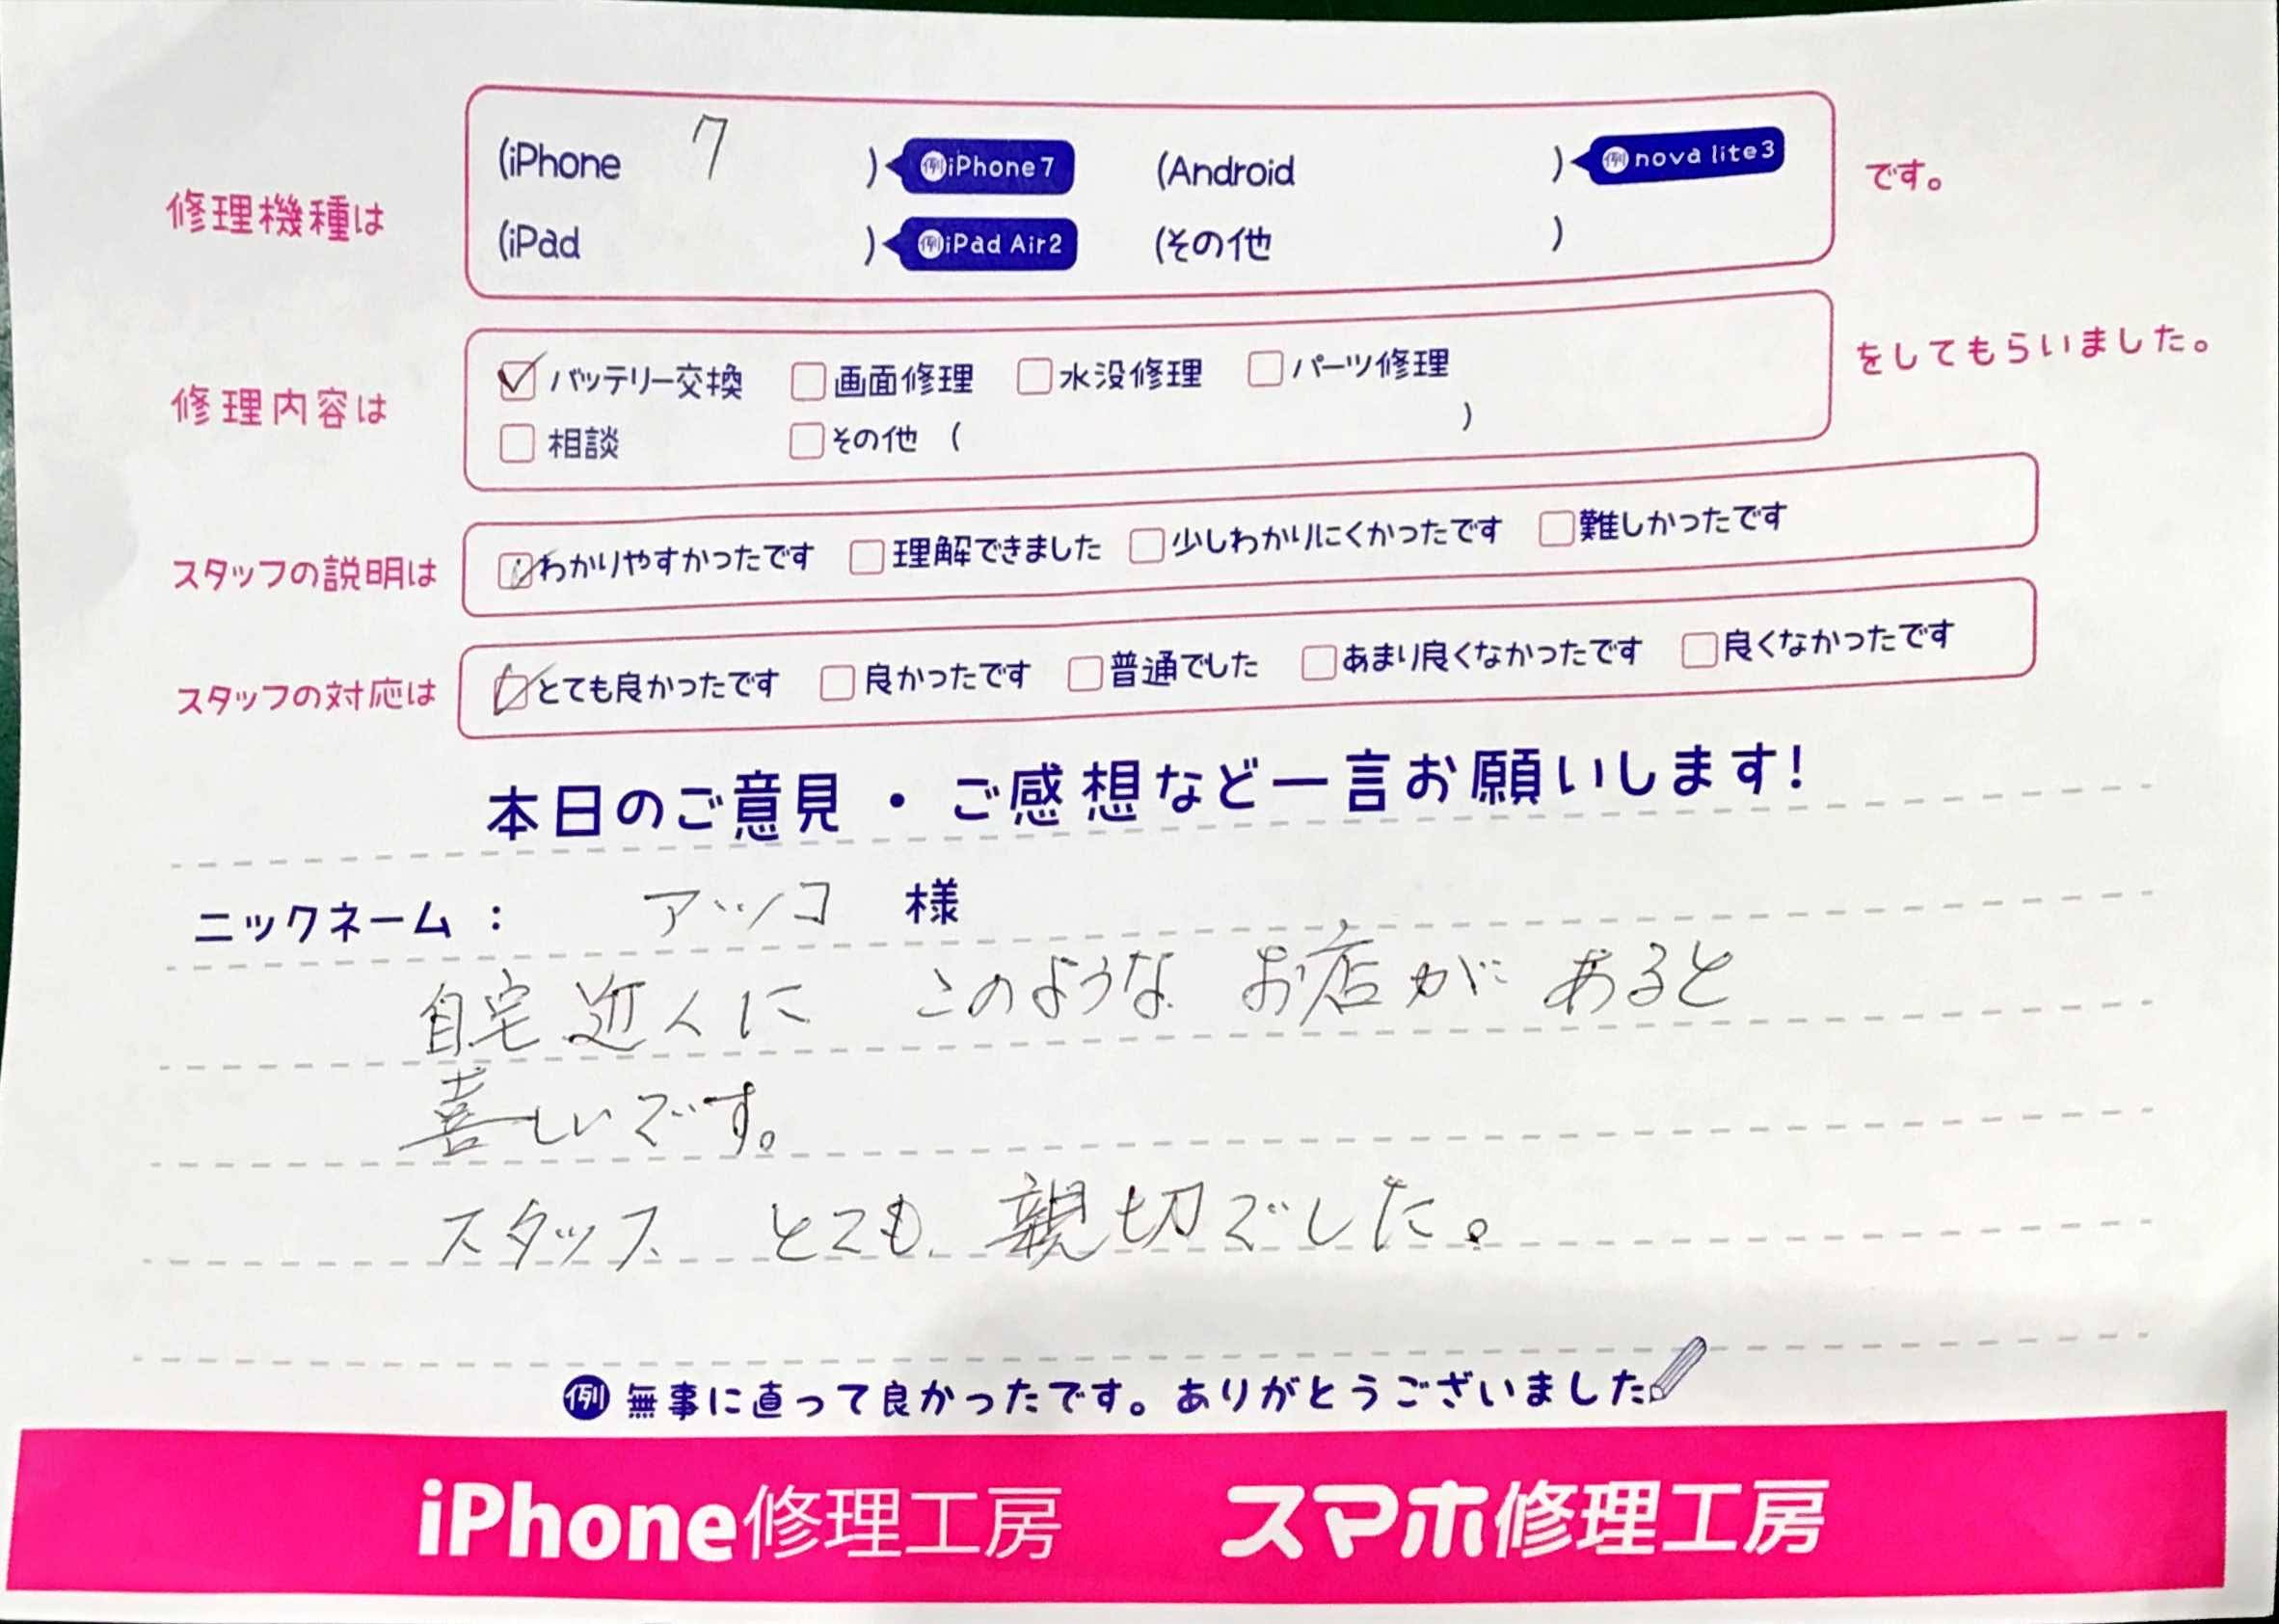 修理機種は (iPhone 7 ) 例iPhone7 (Android ) 例nova lite3 です。
(iPad ) 例iPad Air2 (その他 )
修理内容は ☑バッテリー交換 □画面修理 □水没修理 □パーツ修理 をしてもらいました。
□相談 □その他 ( )
スタッフの説明は ☑わかりやすかったです □理解できました □少しわかりにくかったです □難しかったです
スタッフの対応は ☑とても良かったです □良かったです □普通でした □あまり良くなかったです □良くなかったです
本日のご意見・ご感想など一言お願いします!
ニックネーム： アツコ 様
自宅近くに このような お店が あると
喜しいです。
スタッフ とても 親切でした。
例 無事に直って良かったです。ありがとうございました
iPhone修理工房 スマホ修理工房